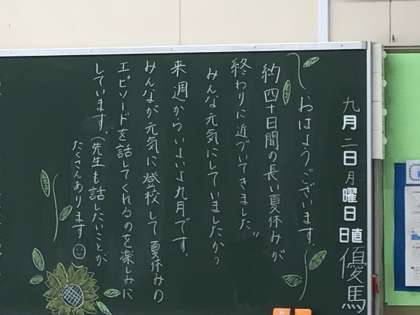 九月二日月曜日 日直 優馬
おはようございます。
約四十日間の長い夏休みが
終わりに近づいてきました。
みんな元気にしていましたか？
来週からいよいよ九月です。
みんなが元気に登校して夏休みの
エピソードを話してくれるのを楽しみに
しています。（先生も話したいことが
たくさんあります